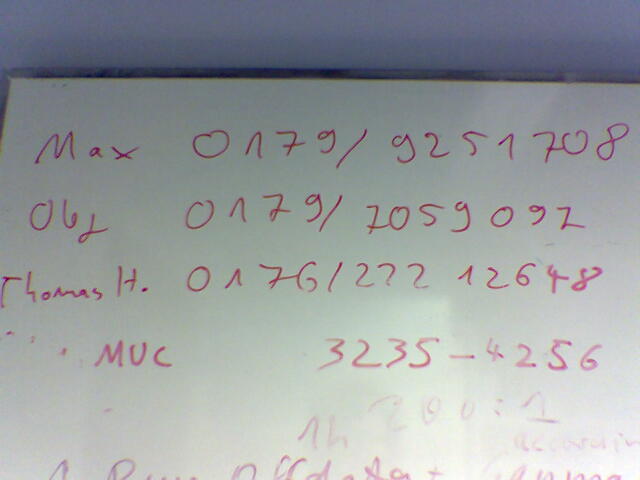 Max 0179/ 9251708
0179/ 7059092
Thomas H. 0176/222 12648
MUC 3235-4256
1h 200:1